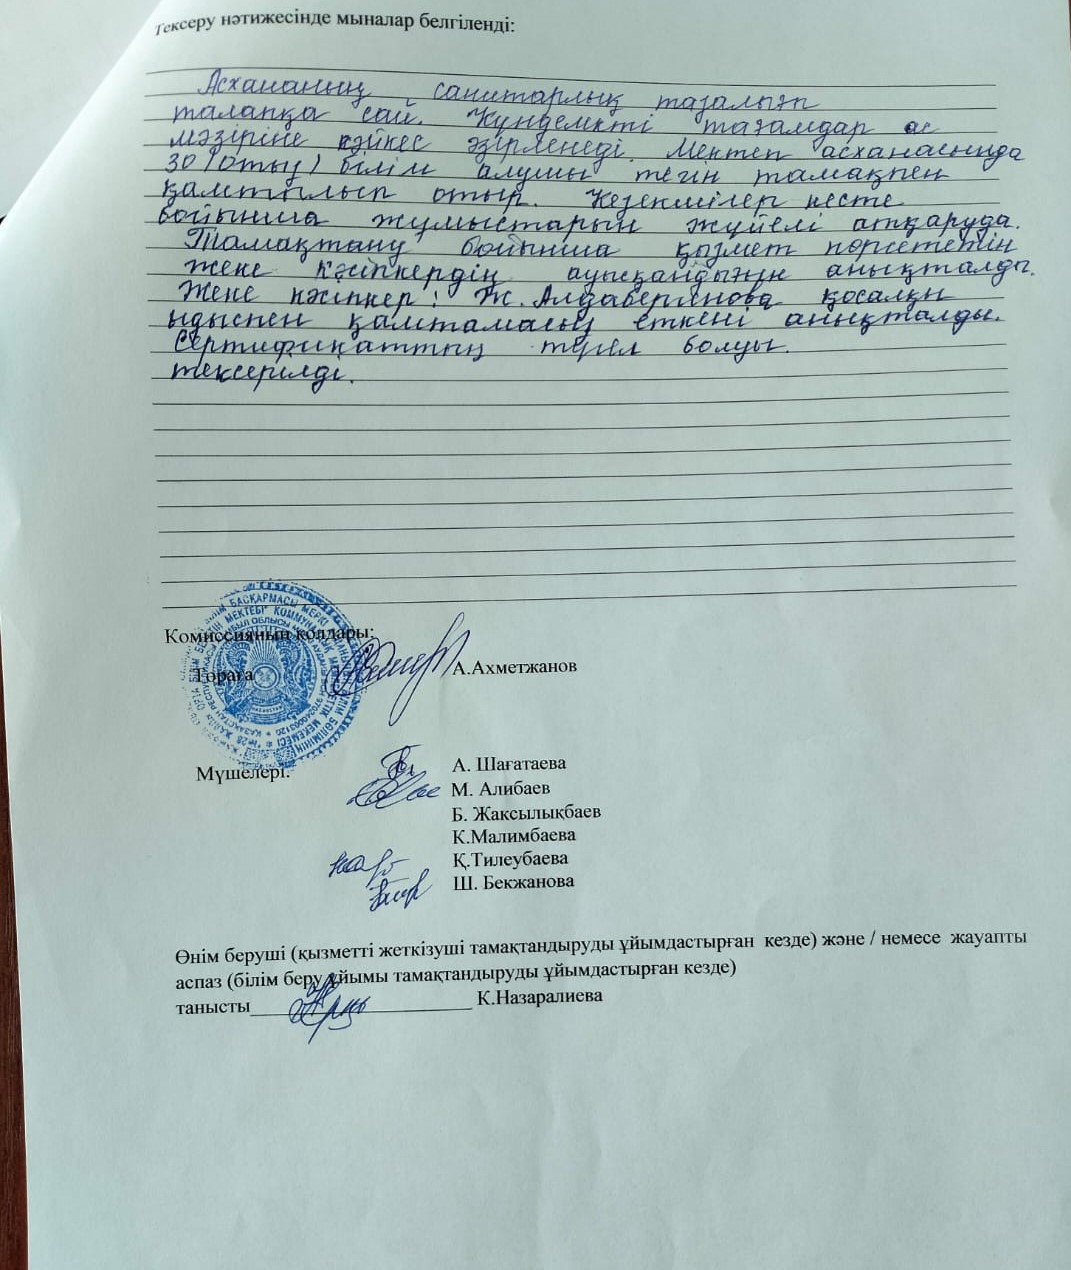 Тексеру нәтижесінде мыналар белгіленді:
Асхананың санитарлық тазалығы
талапқа сай. Күнделікті тағамдар ас
мәзіріне сәйкес әзірленеді. Мектеп асханасында
30 (отыз) білім алушы тегін тамақпен
қамтылып отыр. Кезекшілер кесте
бойынша жұмыстарын жүйелі атқаруда.
Тамақтану бойынша қызмет көрсететін
жеке кәсіпкердің ауысқандығы анықталды.
Жеке кәсіпкер: Ж. Алдабергенова қосалқы
ыдыспен қамтамасыз еткені анықталды.
Сертификаттың түгел болуы
тексерілді.
Комиссияның қолдары:
Төраға А.Ахметжанов
Мүшелері: А. Шағатаева
М. Алибаев
Б. Жаксылықбаев
К.Малимбаева
Қ.Тилеубаева
Ш. Бекжанова
Өнім беруші (қызметті жеткізуші тамақтандыруды ұйымдастырған кезде) және / немесе жауапты
аспаз (білім беру ұйымы тамақтандыруды ұйымдастырған кезде)
танысты К.Назаралиева